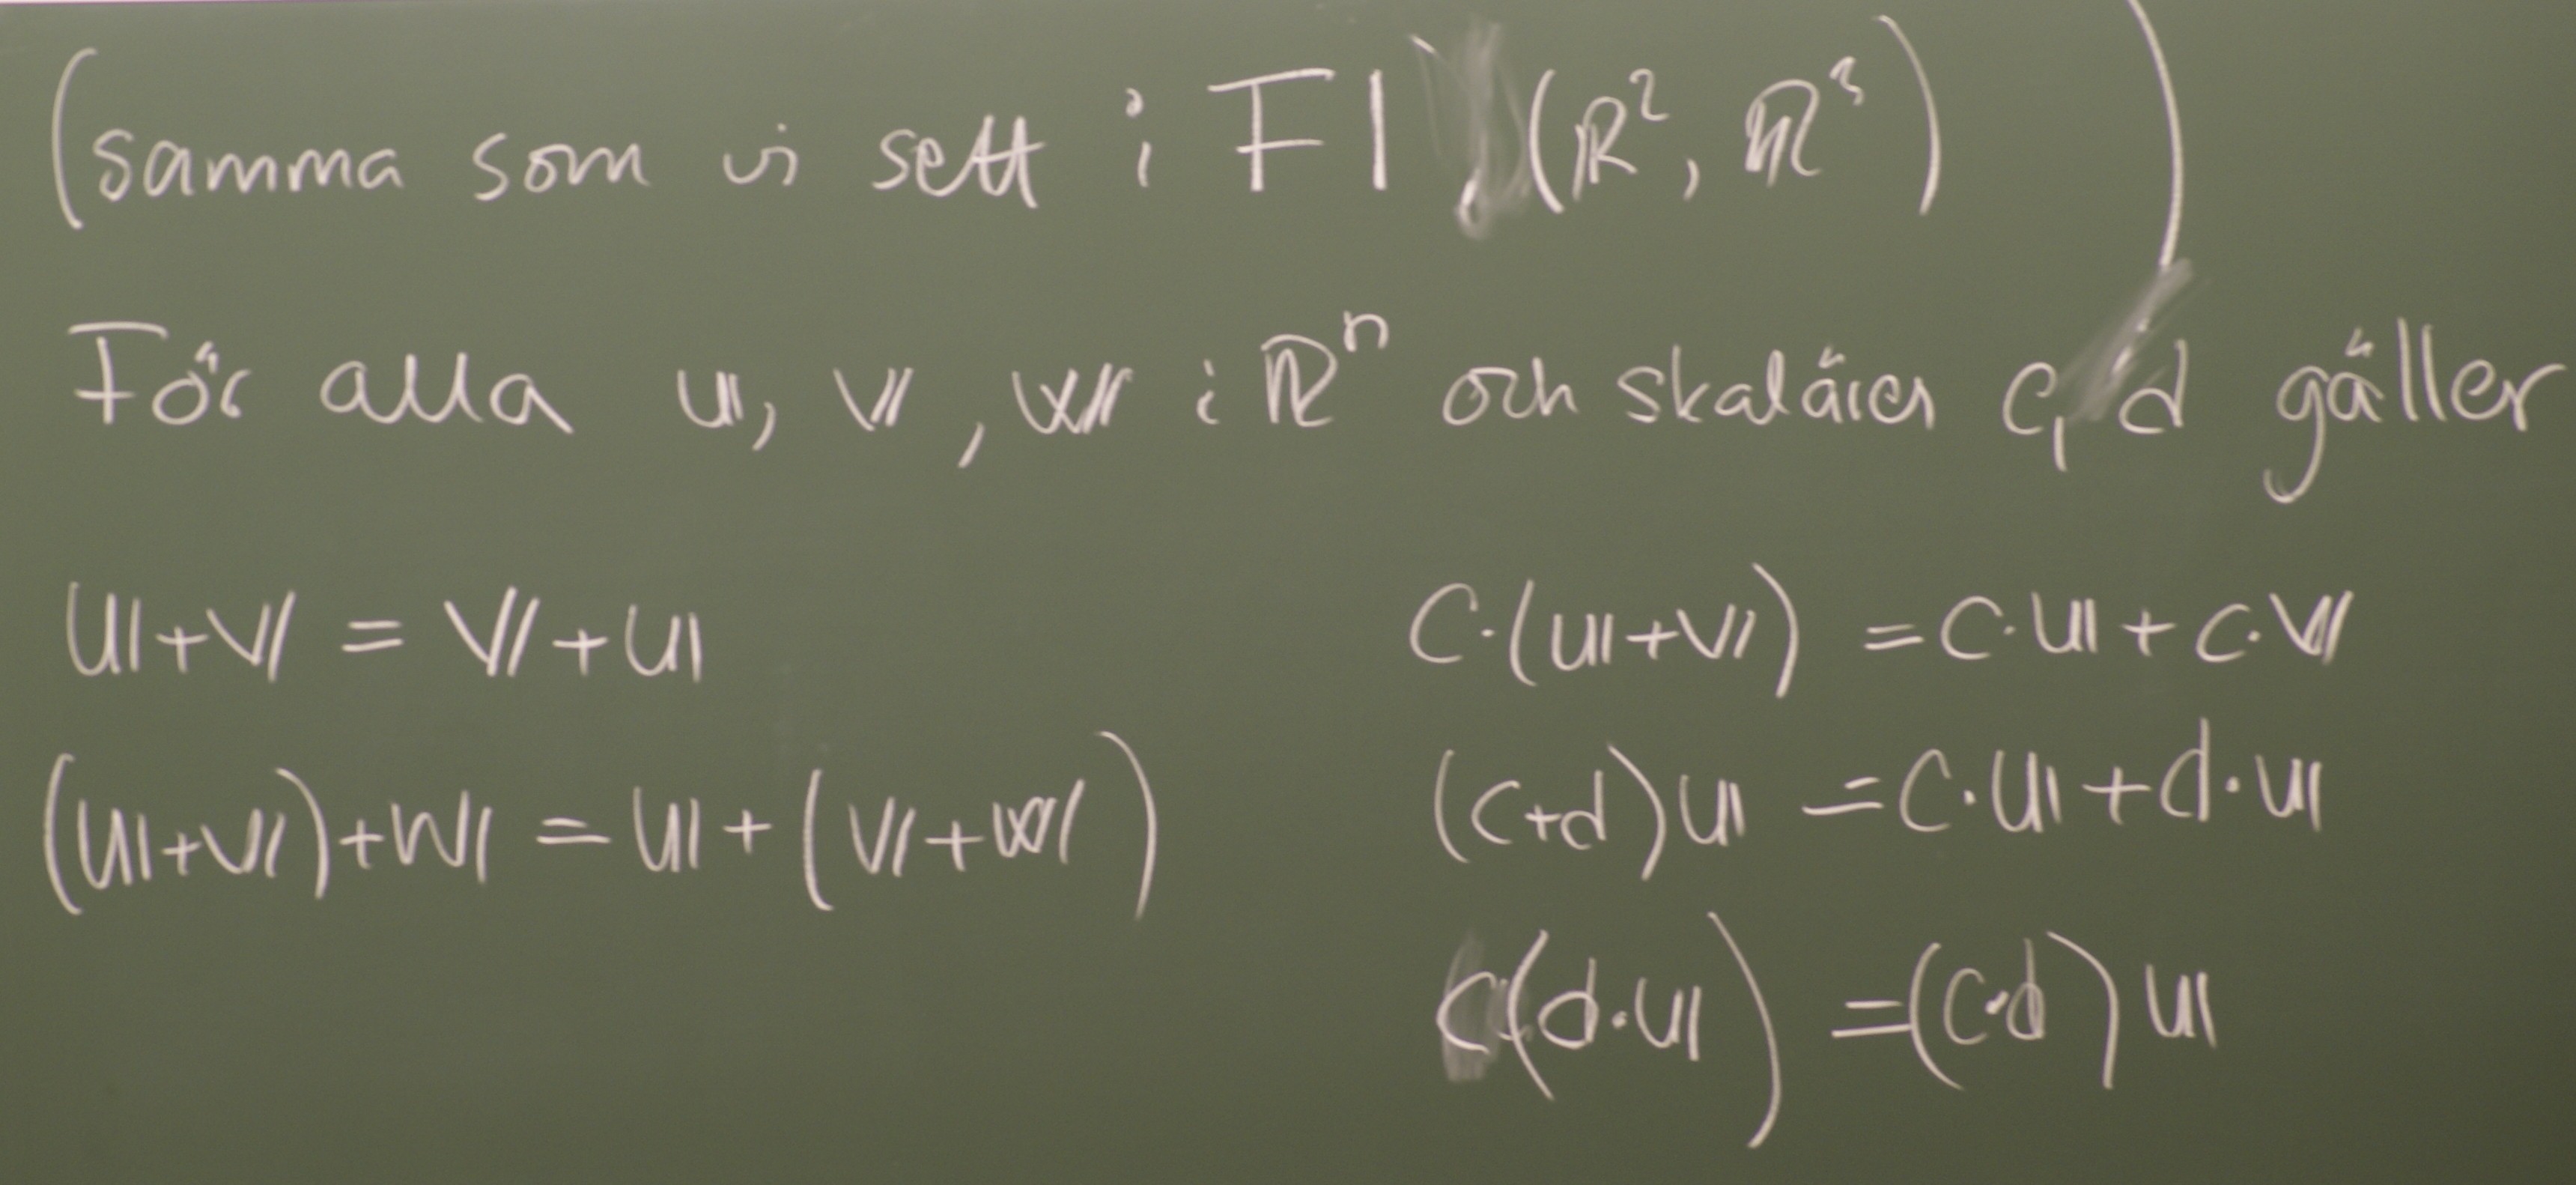 (samma som vi sett i F1 (ℝ², ℝ³))
För alla 𝕦, 𝕧, 𝕨 i ℝⁿ och skalärer c, d gäller
𝕦+𝕧 = 𝕧+𝕦 c·(𝕦+𝕧) = c·𝕦 + c·𝕧
(𝕦+𝕧)+𝕨 = 𝕦+(𝕧+𝕨) (c+d)𝕦 = c·𝕦+d·𝕦
c(d·𝕦) = (c·d)𝕦